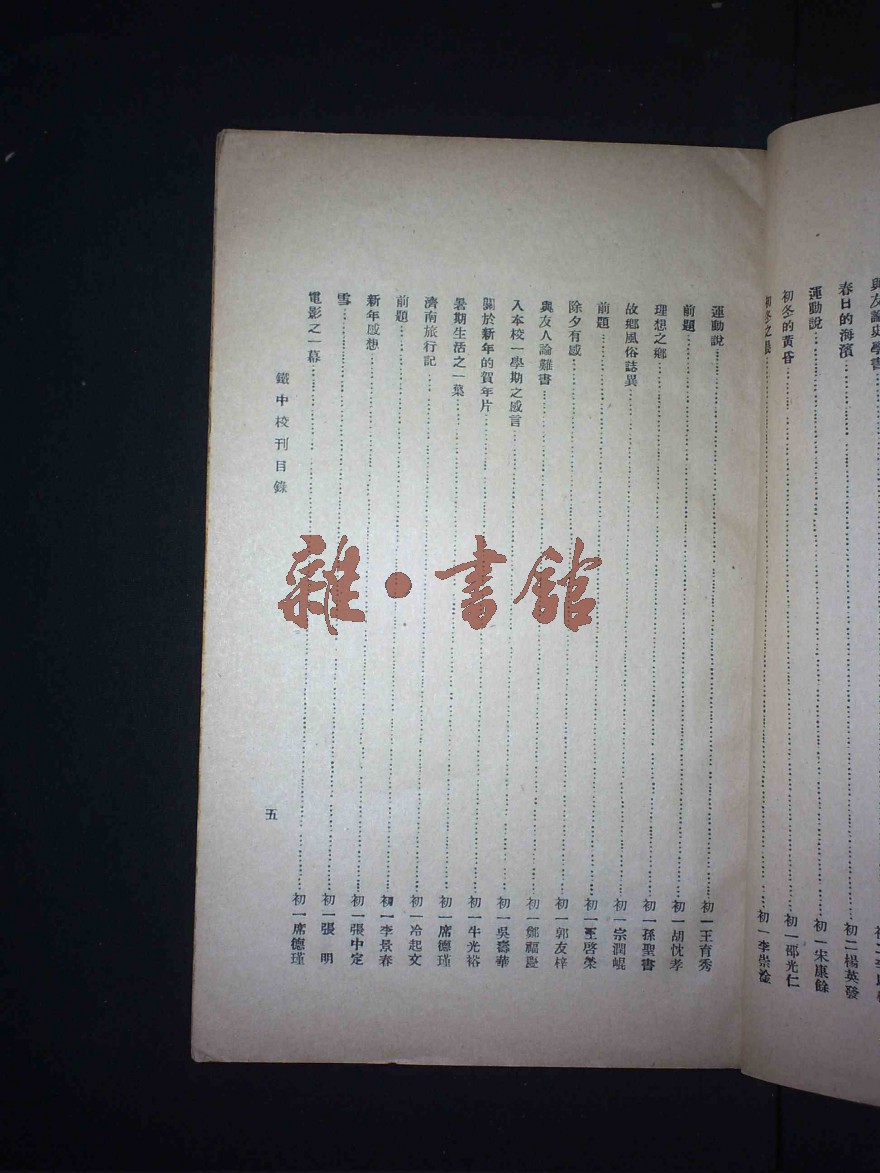 與友論史學書
春日的海濱……初二楊英發
運動說……初一宋康餘
初冬的黃昏……初一邵光仁
初冬之晨……初一李崇淦
運動說……初一王育秀
前題……初一胡忱孝
理想之鄉……初一孫聖書
故鄉風俗誌異……初一宗潤崐
前題……初一王啓榮
除夕有感……初一郭友梓
與友人論難書……初一鄭福慶
入本校一學期之感言……初一吳壽華
關於新年的賀年片……初一牛光裕
暑期生活之一葉……初一席德瑾
濟南旅行記……初一冷起文
前題……初一李景春
新年感想……初一張中定
雪……初一張 明
電影之一幕……初一席德瑾
鐵中校刊目錄
五
雜·書館